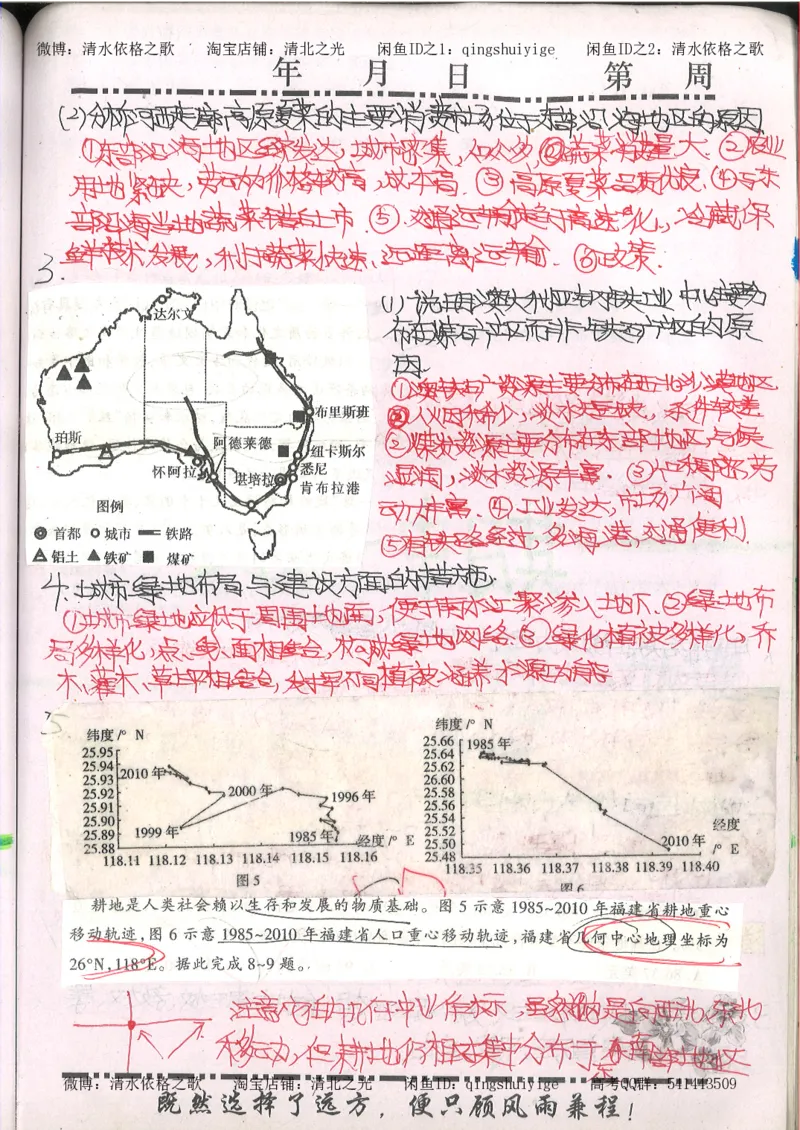 微博：清水依格之歌 淘宝店铺：清北之光 闲鱼ID之1：qingshuiyige 闲鱼ID之2：清水依格之歌
年 月 日 第 周
(2)分析河西走廊高原夏菜的主要消费市场位于东部沿海地区的原因
①东部沿海地区经济发达，城市密集，人口众多，蔬菜消费量大 ②农业
用地紧缺，劳动力价格较高，成本高. ③高原夏菜品质优良 ④与东
部沿海当地蔬菜错峰上市 ⑤.交通运输 高速化，冷藏保
鲜技术发展，利于蔬菜快速、远距离运输. ⑥政策.
3.
(1)说明澳大利亚钢铁工业中心主要分
布在煤矿产区而非铁矿产区的原
因.
①澳铁矿资源主要分布在西北沙漠地区
人烟稀少，淡水 ，条件较差
②煤炭资源主要分布在东部地区，气候
湿润，淡水资源丰富. ③人口稠密，劳
动力丰富. ④.工业发达，市场广阔
⑤有铁路经过，多海港，交通便利.
达尔文
布里斯班
珀斯
阿德莱德
纽卡斯尔
悉尼
怀阿拉
堪培拉
肯布拉港
图例
首都 城市 铁路
铝土 铁矿 煤矿
4.城市绿地布局与建设方面的措施.
①城市绿地应低于周围地面，便于雨水汇聚渗入地下.②绿地布
局多样化，点、线、面相结合，构成绿地网络.③绿化植被多样化，乔
木、灌木、草坪相结合，发挥不同植被涵养水源功能
5
纬度/° N
25.95
25.94
25.93
25.92
25.91
25.90
25.89
25.88
2010年
2000年
1996年
1999年
1985年
经度/° E
118.11 118.12 118.13 118.14 118.15 118.16
图5
纬度/° N
25.66
25.64
25.62
25.60
25.58
25.56
25.54
25.52
25.50
25.48
1985年
2010年
经度
/° E
118.35 118.36 118.37 118.38 118.39 118.40
图6
耕地是人类社会赖以生存和发展的物质基础。图5示意1985~2010年福建省耕地重心
移动轨迹，图6示意1985~2010年福建省人口重心移动轨迹，福建省几何中心地理坐标为
26°N,118°E。据此完成8~9题。
注意几何中心 坐标， 是向西北、东北
移动，但耕地仍相对集中分布于东 地区
微博：清水依格之歌 淘宝店铺：清北之光 闲鱼ID之1：qingshuiyige 高考QQ群：541443509
既然选择了远方，便只顾风雨兼程！